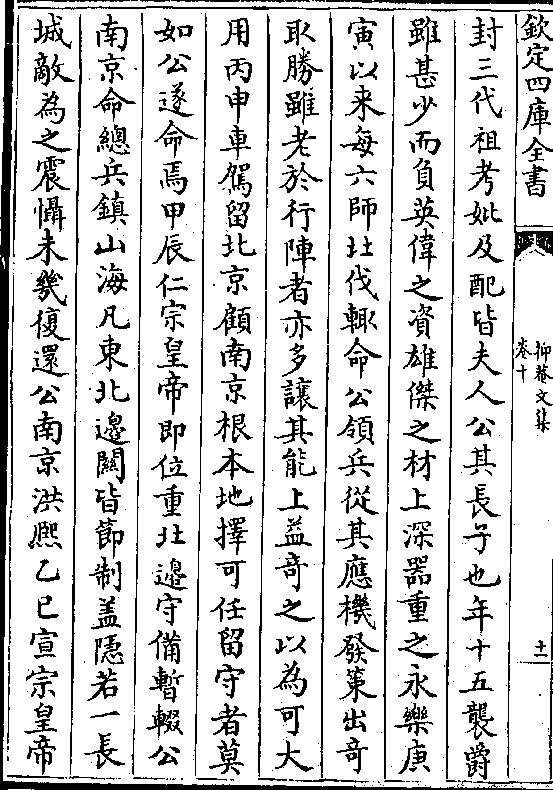 欽定四庫全書
抑菴文集
卷十
十一
封三代祖考妣及配皆夫人公其長子也年十五襲爵
雖甚少而負英偉之資雄傑之材上深器重之永樂庚
寅以来每六師北伐輙命公領兵從其應機發策出奇
取勝雖老於行陣者亦多讓其能上益奇之以為可大
用丙申車駕留北京顧南京根本地擇可任留守者莫
如公遂命焉甲辰仁宗皇帝即位重北邉守備暫輟公
南京命總兵鎮山海凡東北邉闗皆節制盖隠若一長
城敵為之震懾未幾復還公南京洪熈乙巳宣宗皇帝